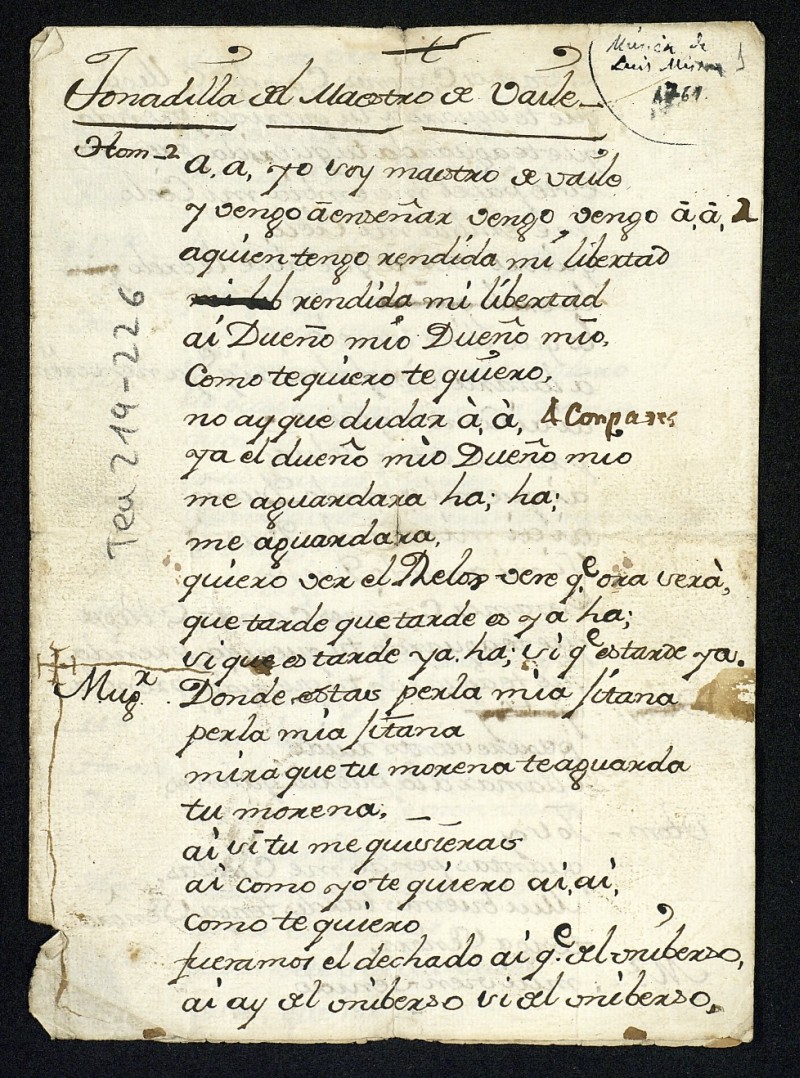 Música de
Luis Misón
1761.
Tonadilla del Maestro de Vaile
Hom-2
a, a, yo soy maestro de vaile
y vengo ā enseñar vengo vengo ā, ā, 2
aquien tengo rendida mi libertad
rendida mi libertad
ai Dueño mio Dueño mio,
Como te quiero te quiero,
no ay que dudar à, à, 4 Conpases
ya el dueño mìo Dueño mio
me aguardara ha; ha;
me aguardara,
quiero ver el Relox vere q.e ora serà,
que tarde que tarde es ya ha;
si que es tarde ya. ha; si q.e es tarde ya.
Mug.r Donde estas perla mia Jitana
perla mia Jitana
mira que tu morena te aguarda
tu morena,
ai si tu me quisieras
ai como yo te quiero ai, ai,
como te quiero
fueramos el dechado ai q.e del vniberso,
ai ay del vniberso si del vniberso,
Tea 219-226